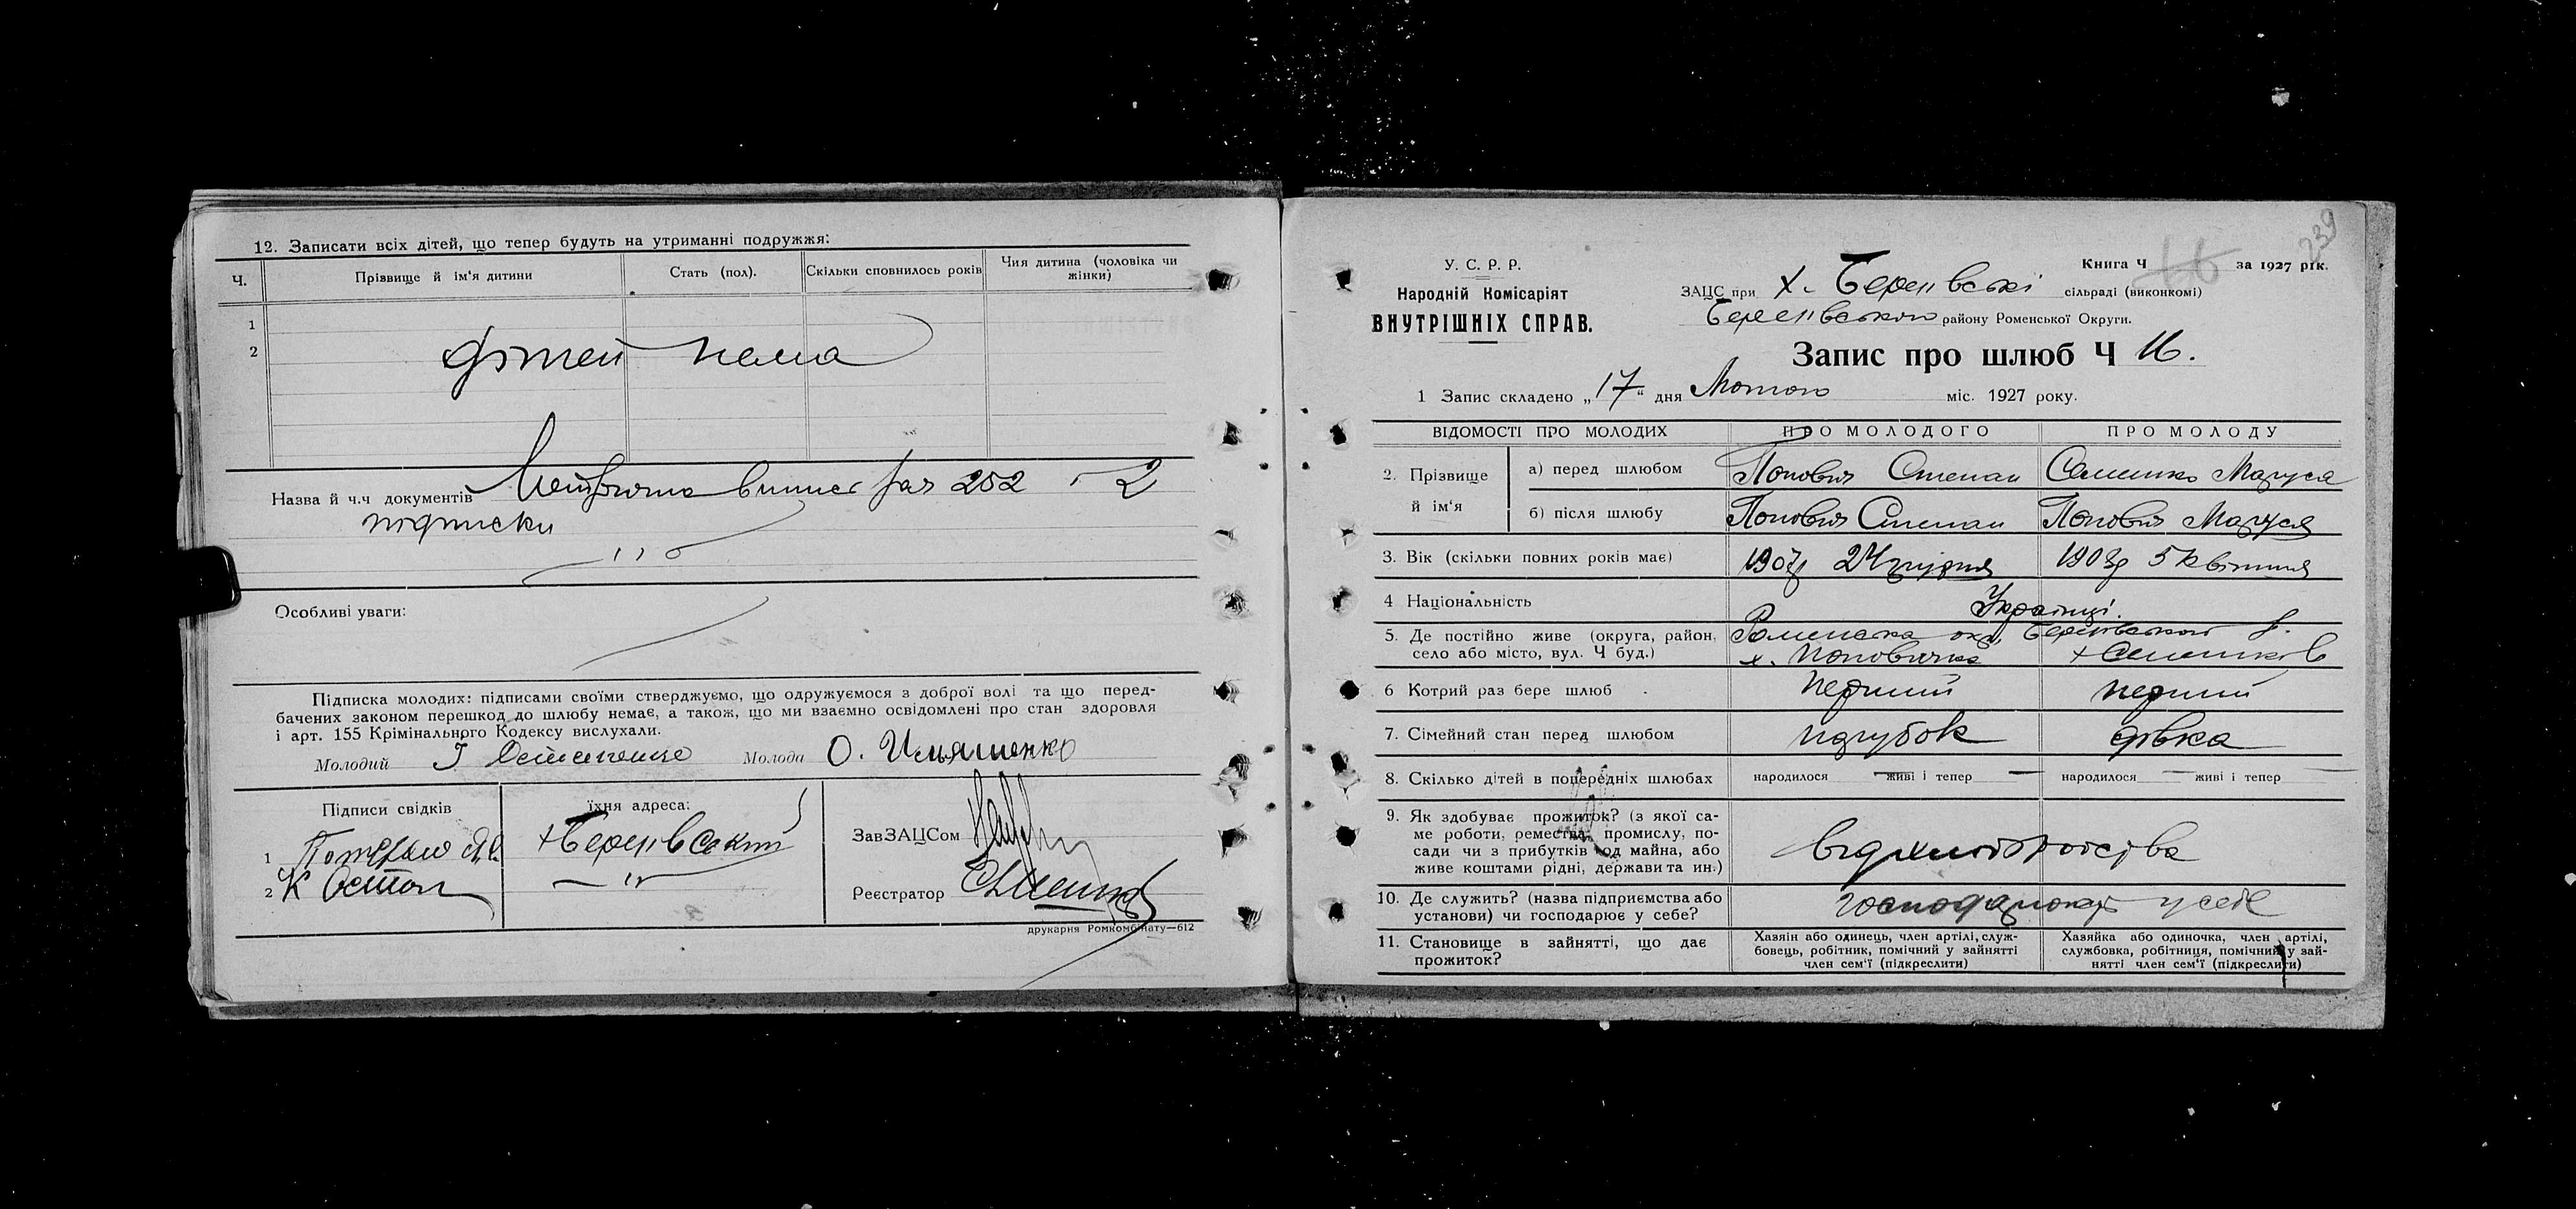 12. Записати всіх дітей, що тепер будуть на утриманні подружжя:
Ч. Прізвище й ім'я дитини Стать (пол). Скільки сповнилось років Чия дитина (чоловіка чи жінки)
1
2
дітей нема
Назва й ч.ч документів 252 і 2
підписки
Особливі уваги:
Підписка молодих: підписами своїми стверджуємо, що одружуємося з доброї волі та що перед-
бачених законом перешкод до шлюбу немає, а також, що ми взаємно освідомлені про стан здоровля
і арт. 155 Крімінального Кодексу вислухали.
Молодий Молода О. Ильяшенко
Підписи свідків їхня адреса:
ЗавЗАЦСом
1
2
Реєстратор
друкарня Ромкомбінату—612
239
У. С. Р. Р.
Народній Комісаріят
ВНУТРІШНІХ СПРАВ.
Книга Ч 16 за 1927 рік.
ЗАЦС при х. сільраді (виконкомі)
району Роменської Округи.
Запис про шлюб Ч 16.
1 Запис складено „17“ дня Лютого міс. 1927 року.
ВІДОМОСТІ ПРО МОЛОДИХ ПРО МОЛОДОГО ПРО МОЛОДУ
2. Прізвище й ім'я
а) перед шлюбом Попович Степан Семешко Маруся
б) після шлюбу Попович Степан Попович Маруся
3. Вік (скільки повних років має) 1907р 24 грудня 1903р 5 квітня
4 Національність Українці.
5. Де постійно живе (округа, район, Роменська окр,
село або місто, вул. Ч буд.) х. Поповичка х Семешків
6 Котрий раз бере шлюб перший перший
7. Сімейний стан перед шлюбом парубок дівка
8. Скілько дітей в попередніх шлюбах народилося — живі і тепер — народилося — живі і тепер —
9. Як здобуває прожиток? (з якої са-
ме роботи, ремества, промислу, по-
сади чи з прибутків од майна, або
живе коштами рідні, держави та ин.)
від хліборобства
10. Де служить? (назва підприємства або
установи) чи господарює у себе?
господарюють у себе
11. Становище в зайнятті, що дає
прожиток?
Хазяін або одинець, член артілі, служ-
бовець, робітник, помічний у зайнятті
член сем'ї (підкреслити)
Хазяйка або одиночка, член артілі,
службовка, робітниця, помічний у зай-
нятті член сем'ї (підкреслити)